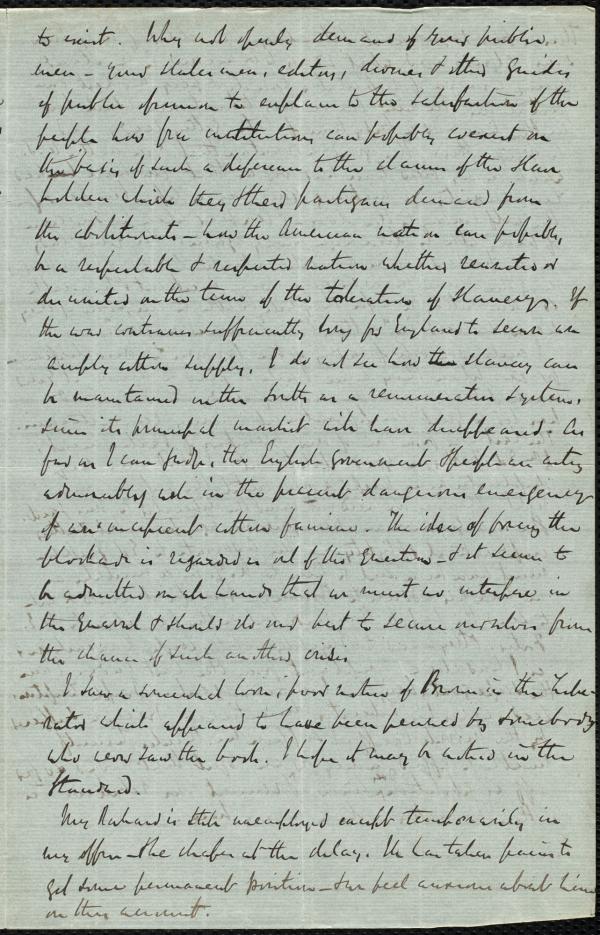 to exist. Why not openly demand of your public
men – your statesmen, editors, divines & other guides
of public opinion to explain to the satisfaction of the
people how free institutions can possibly coexist on
the basis of such a deference to the claims of the slave
holders which they & their partizans demand from
the abolitionists – how the American nation can possibly
be a respectable & respected nation whether reunited or
disunited on the terms of the toleration of slavery. If
the war continues sufficiently long for England to secure an
ample cotton supply, I do not see how the slavery can
be maintained in the South as a remunerative system,
since its principal market will have disappeared. As
far as I can judge, the English government & people are acting
admirably well in the present dangerous emergency
of an incipient cotton famine. The idea of forcing the
blockade is regarded as out of the question – & it seems to
be admitted on all hands that we must not interfere in
the quarrel & should do our best to secure ourselves from
the chance of such another crisis
I saw a notice of Brown in the Libe-
rator which appeared to have been penned by somebody
who never saw the book. I hope it may be noticed in the
Standard.
My Richard is still unemployed except temporarily in
my office – he chafes at the delay. He has taken pains to
get some permanent position – & we feel anxious about him
on this account.